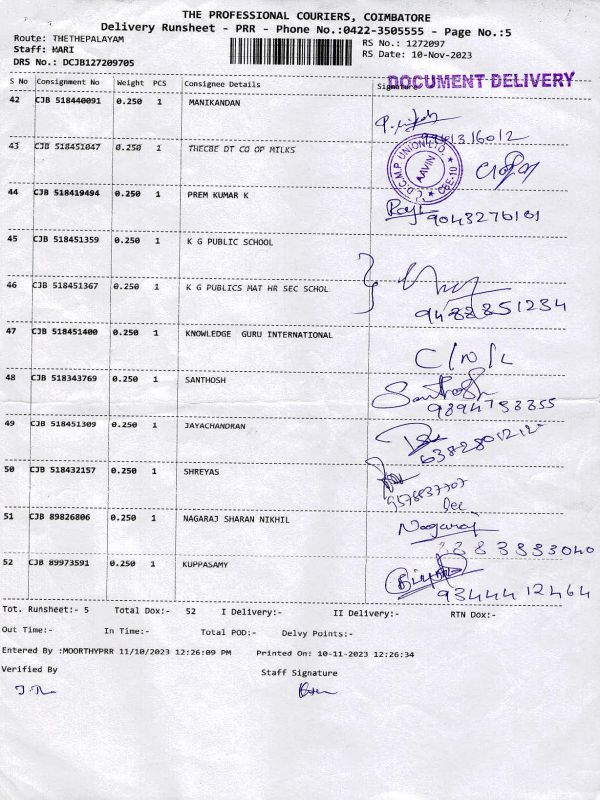 THE PROFESSIONAL COURIERS, COIMBATORE
Delivery Runsheet - PRR - Phone No.:0422-3505555 - Page No.:5
Route: THETHEPALAYAM
Staff: HARI
DRS No.: DCJB127209705
RS No.: 1272097
RS Date: 10-Nov-2023
S No Consignment No Weight PCS Consignee Details Signature
DOCUMENT DELIVERY
42 CJB 518440091 0.250 1 MANIKANDAN
43 CJB 518451047 0.250 1 THECBE DT CO OP MILKS
C.D.C.M.P. UNION LTD. CBE-10
AAVIN
44 CJB 518419494 0.250 1 PREM KUMAR K
9043276101
45 CJB 518451359 0.250 1 K G PUBLIC SCHOOL
46 CJB 518451367 0.250 1 K G PUBLICS MAT HR SEC SCHOL
9488851234
47 CJB 518451400 0.250 1 KNOWLEDGE GURU INTERNATIONAL
C/N/L
48 CJB 518343769 0.250 1 SANTHOSH
Santhosh
9894793355
49 CJB 518451309 0.250 1 JAYACHANDRAN
50 CJB 518432157 0.250 1 SHREYAS
51 CJB 89826806 0.250 1 NAGARAJ SHARAN NIKHIL
Nagaraj
52 CJB 89973591 0.250 1 KUPPASAMY
9344412464
Tot. Runsheet:- 5 Total Dox:- 52 I Delivery:- II Delivery:- RTN Dox:-
Out Time:- In Time:- Total POD:- Delvy Points:-
Entered By :MOORTHYPRR 11/10/2023 12:26:09 PM Printed On: 10-11-2023 12:26:34
Verified By Staff Signature